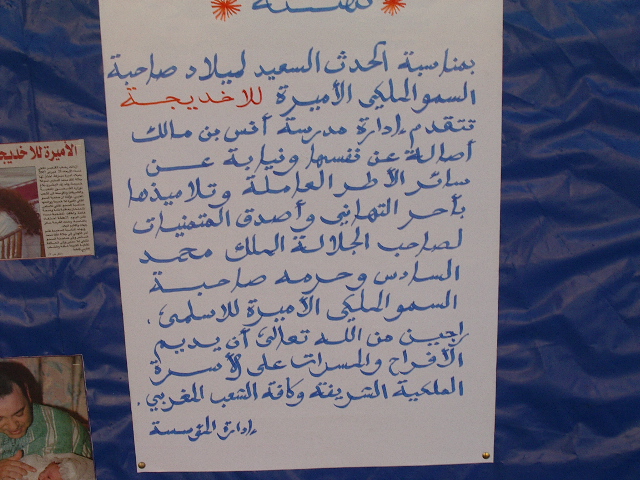 تهنئة
بمناسبة الحدث السعيد لميلاد صاحبة
السمو الملكي الأميرة للاخديجة
تتقدم إدارة مدرسة أنس بن مالك
أصالة عن نفسها ونيابة عن
سائر الأطر العاملة وتلاميذها
بأحر التهاني وأصدق المتمنيات
لصاحب الجلالة الملك محمد
السادس وحرمه صاحبة
السمو الملكي الأميرة للاسلمى.
راجين من الله تعالى أن يديم
الأفراح والمسرات على الأسرة
الملكية الشريفة وكافة الشعب المغربي.
إدارة المؤسسة
الأميرة للاخديجة